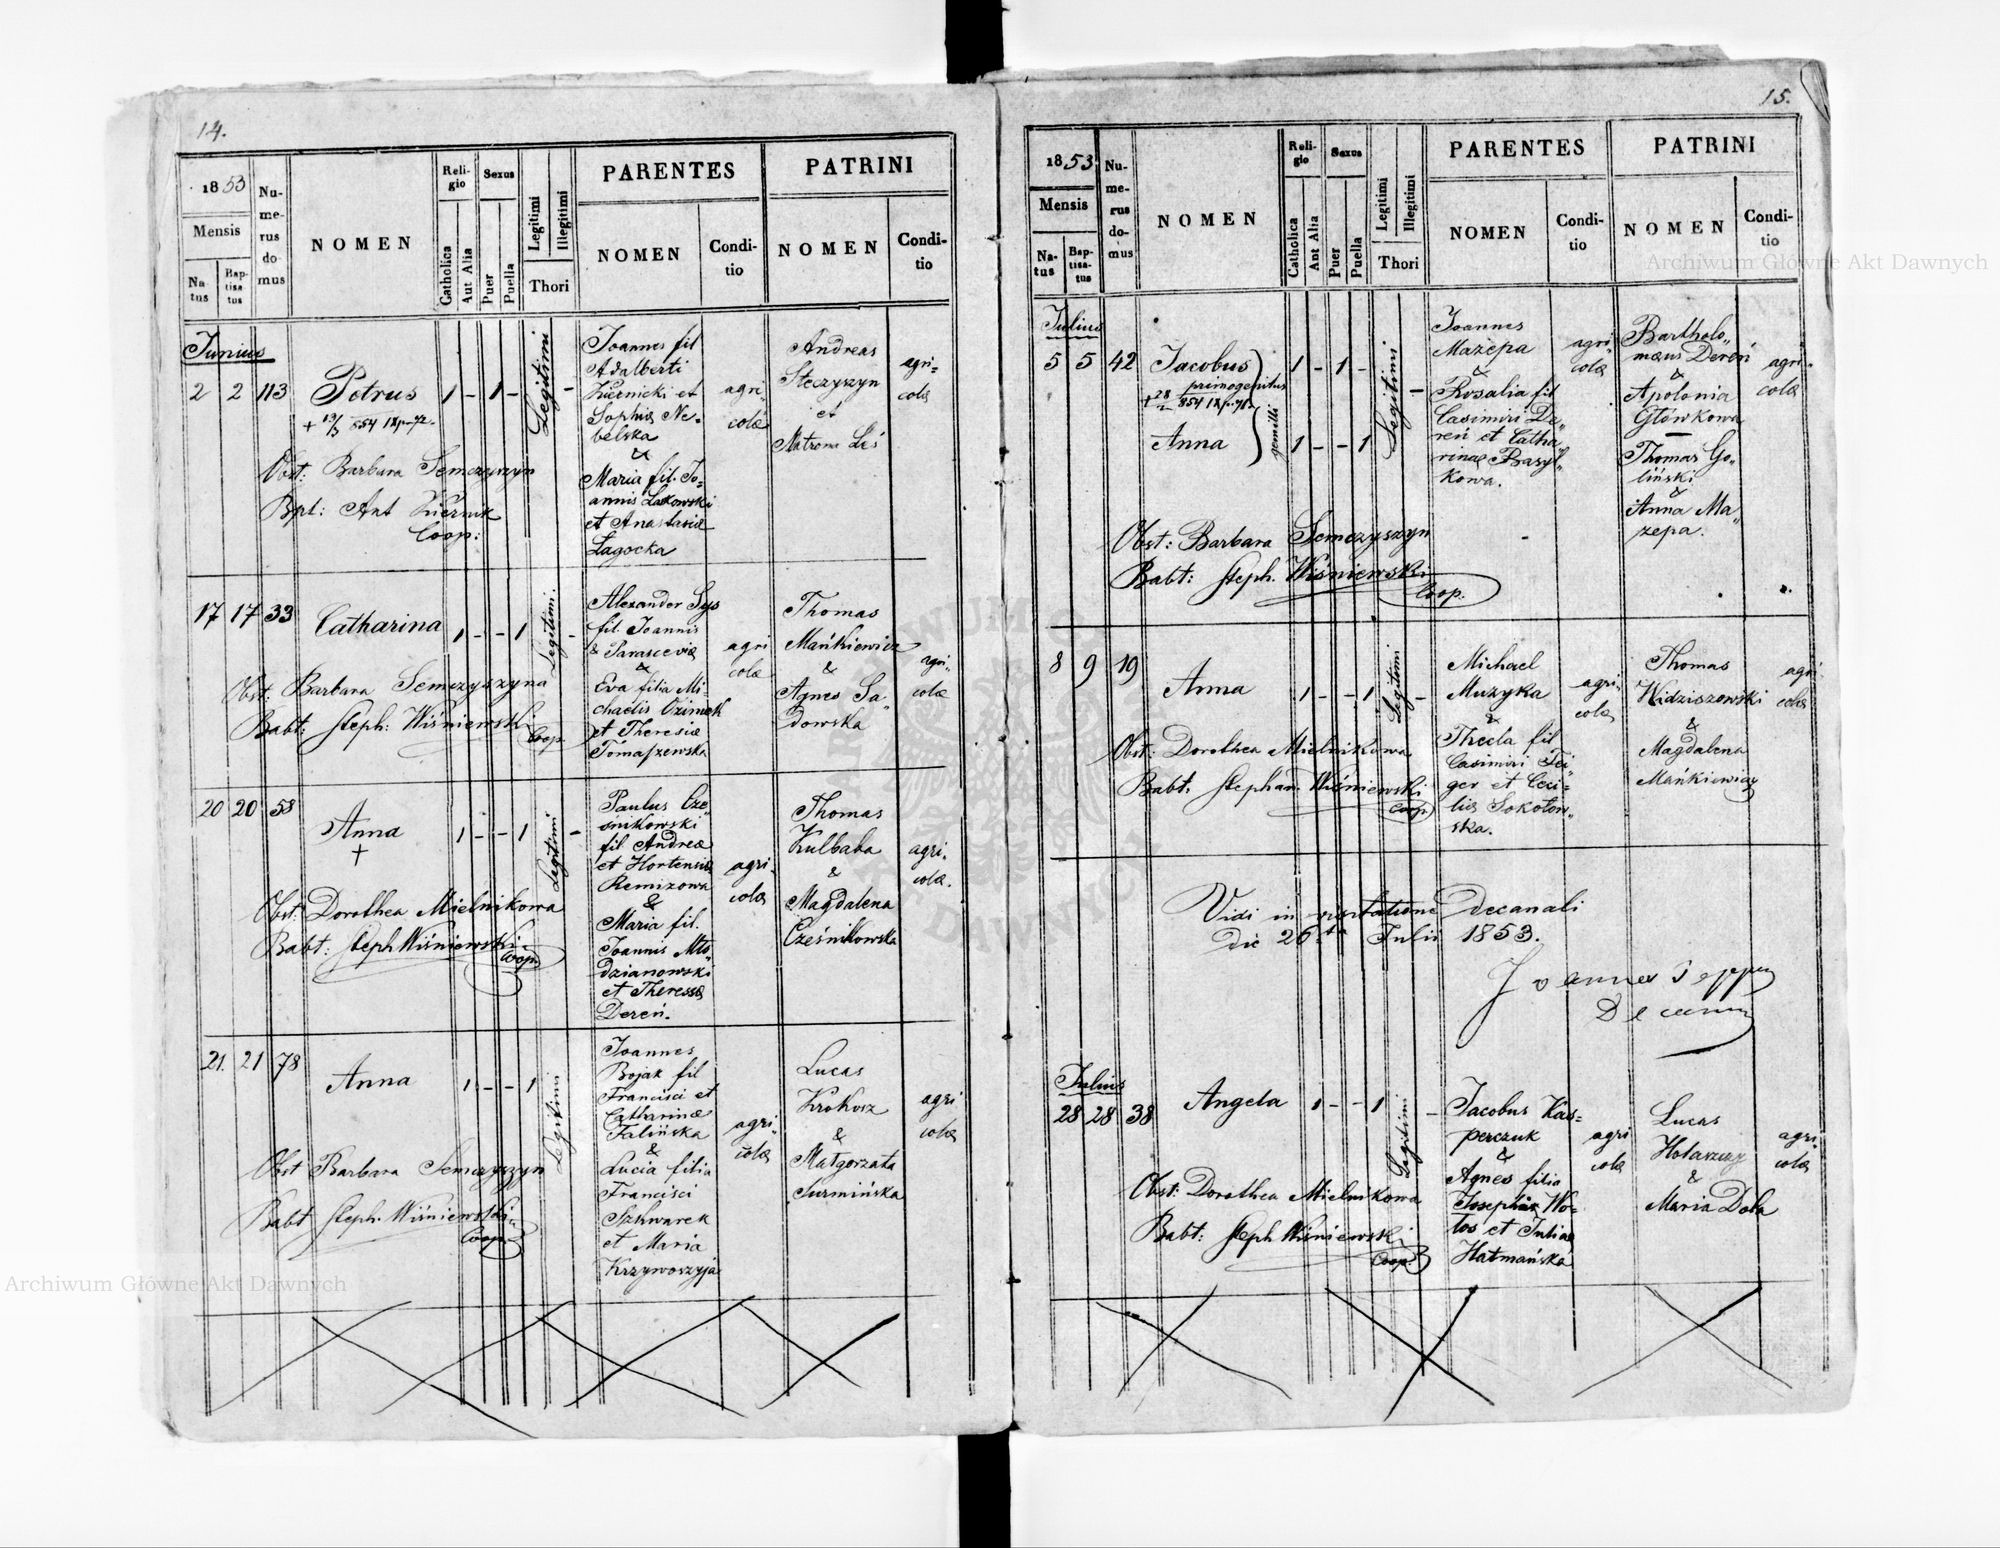 14.
1853
Mensis
Na-
tus
Bap-
tisa-
tus
Nu-
me-
rus
do-
mus
NOMEN
Reli-
gio
Catholica
Aut Alia
Sexus
Puer
Puella
Legitimi
Illegitimi
Thori
PARENTES
NOMEN
Condi-
tio
PATRINI
NOMEN
Condi-
tio
Junius
2 2 113 Petrus 1 - 1 - Legitimi -
+ 19/3 854
Obst: Barbara Semczyszyn
Bpt: Ant Kiernik
Coop:
Joannes fil
Adalberti
Kiernicki et
Sophiæ Ne-
belska
&
Maria fil. Jo-
annis Laskowski
et Anastasiæ
Łagocka
agri-
colæ
Andreas
Steczyszyn
et
Matrona Liś
agri-
colæ
17 17 33 Catharina 1 - - 1 Legitimi. -
Obst: Barbara Semczyszyna
Babt: Steph: Wiśniewski
Coop.
Alexander Sys
fil. Joannis
& Parasceviæ
&
Eva filia Mi-
chaelis Ozimek
et Theresiæ
Tomaszewska
agri
colæ
Thomas
Mańkiewicz
&
Agnes Sa-
dowska
agri-
colæ
20 20 58 Anna 1 - - 1 Legitimi -
+
Obst: Dorothea Mielnikowa
Babt: Steph Wiśniewski
Coop.
Paulus Cze-
śnikowski
fil Andreæ
et Hortensiæ
Remizowa
&
Maria fil.
Joannis Mło-
dzianowski
et Theresæ
Dereń.
agri-
colæ
Thomas
Kulbaba
&
Magdalena
Cześnikowska
agri-
colæ.
21. 21 78 Anna 1 - - 1 Legitimi
Obst Barbara Semczyszyn
Babt Steph. Wiśniewski
Coop.
Joannes
Bojak fil
Francisci et
Catharinæ
Falińska
&
Lucia filia
Francisci
Szkwarek
et Maria
Krzywoszyja
agri-
colæ
Lucas
Krokosz
&
Małgorzata
Surmińska
agri
colæ
15.
1853
Mensis
Na-
tus
Bap-
tisa-
tus
Nu-
me-
rus
do-
mus
NOMEN
Reli-
gio
Catholica
Aut Alia
Sexus
Puer
Puella
Legitimi
Illegitimi
Thori
PARENTES
NOMEN
Condi-
tio
PATRINI
NOMEN
Condi-
tio
Julius
5 5 42 Jacobus 1 - 1 - Legitimi -
primogenitus
+ 28/2 854
Anna gemelli 1 - - 1
Obst: Barbara Semczyszyn
Babt: Steph. Wiśniewski
Coop.
Joannes
Mazepa
&
Rosalia fil
Casimiri De-
reń et Catha-
rinæ Basyl-
kowa.
agri-
colæ
Bartholo-
mæus Dereń
&
Apolonia
Główkowa
Thomas Go-
liński
&
Anna Ma-
zepa.
agri-
colæ
8 9 19 Anna 1 - - 1 Legitimi -
Obst: Dorothea Mielnikowa
Babt: Stephan. Wiśniewski
Coop.
Michael
Muzyka
&
Thecla fil
Casimiri Fei-
ger et Ceci-
liæ Sokołow-
ska.
agri-
colæ
Thomas
Widziszowski
&
Magdalena
Mańkiewicz
agri
colæ
Vidi in visitatione decanali
die 26ta Julii 1853.
Joannes
Decanus
Julius
28 28 38 Angela 1 - - 1 Legitimi -
Obst: Dorothea Mielnikowa
Babt: Steph Wiśniewski
Coop.
Jacobus Kas-
perczuk
&
Agnes filia
Josephi Wo-
łos et Juliæ
Hatmańska
agri
colæ
Lucas
&
Maria Doła
agri-
colæ
Archiwum Główne Akt Dawnych
Archiwum Główne Akt Dawnych